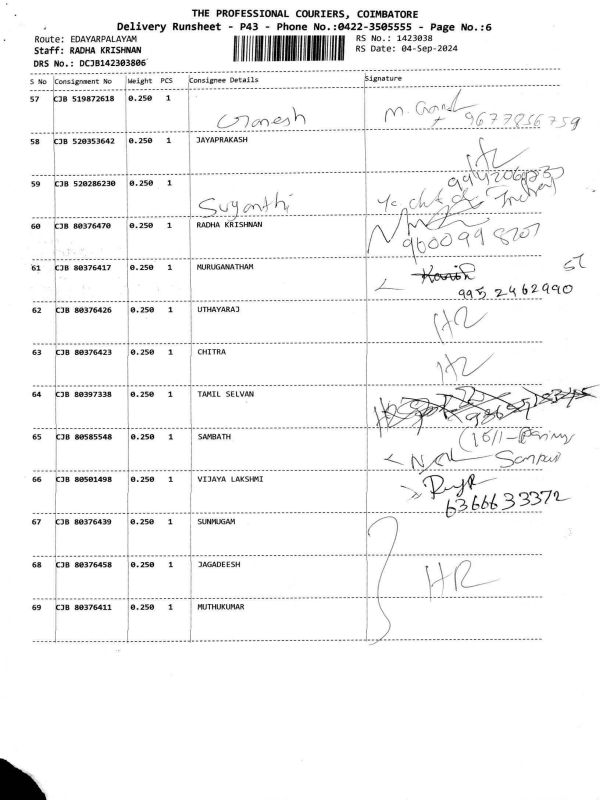 THE PROFESSIONAL COURIERS, COIMBATORE
Delivery Runsheet - P43 - Phone No.:0422-3505555 - Page No.:6
Route: EDAYARPALAYAM
Staff: RADHA KRISHNAN
DRS No.: DCJB142303806
RS No.: 1423038
RS Date: 04-Sep-2024
S No Consignment No Weight PCS Consignee Details Signature
57 CJB 519872618 0.250 1 Ganesh
9677856759
58 CJB 520353642 0.250 1 JAYAPRAKASH
59 CJB 520286230 0.250 1 Suganthi
60 CJB 80376470 0.250 1 RADHA KRISHNAN
9600998207
61 CJB 80376417 0.250 1 MURUGANATHAM
9952462990
62 CJB 80376426 0.250 1 UTHAYARAJ
63 CJB 80376423 0.250 1 CHITRA
64 CJB 80397338 0.250 1 TAMIL SELVAN
65 CJB 80585548 0.250 1 SAMBATH
66 CJB 80501498 0.250 1 VIJAYA LAKSHMI
6366633372
67 CJB 80376439 0.250 1 SUNMUGAM
68 CJB 80376458 0.250 1 JAGADEESH HR
69 CJB 80376411 0.250 1 MUTHUKUMAR